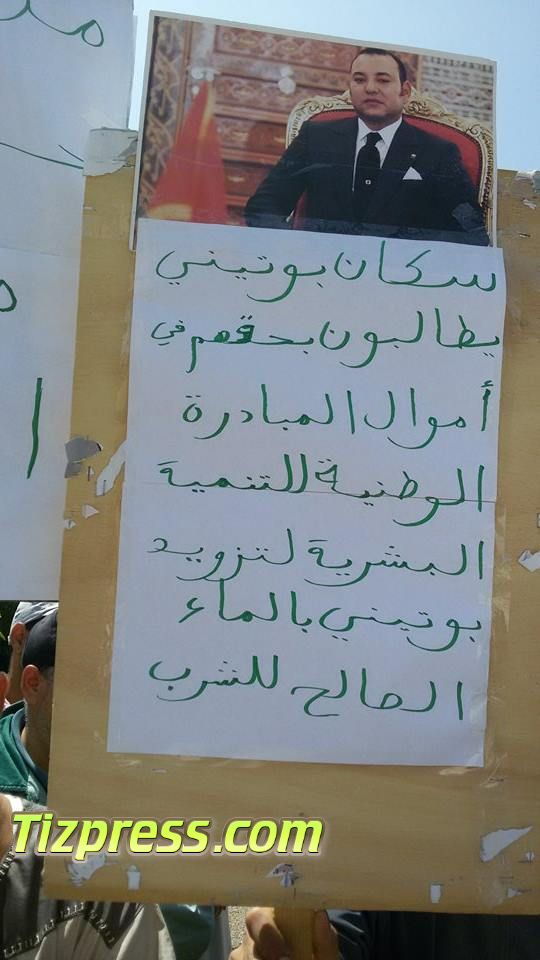 سكان بوتيني
يطالبون بحقهم في
أموال المبادرة
الوطنية للتنمية
البشرية لتزويد
بوتيني بالماء
الصالح للشرب
Tizpress.com